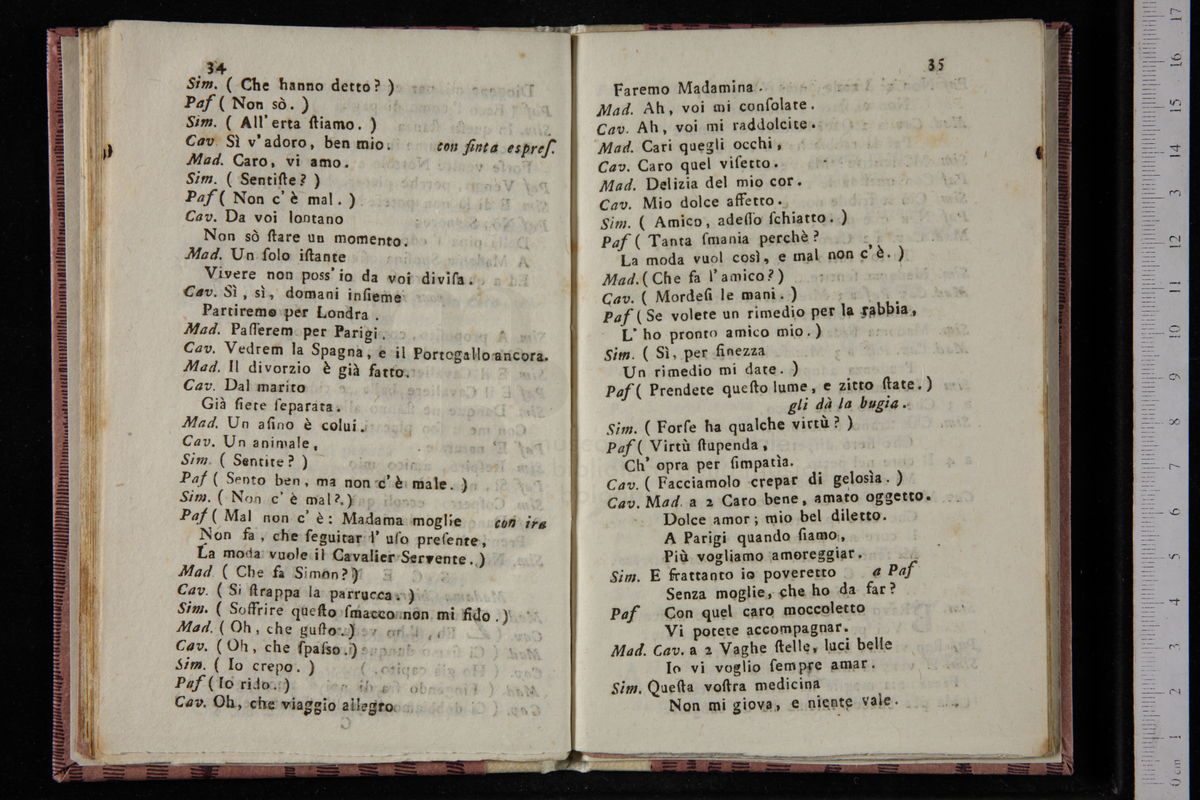 34
Sim. ( Che hanno detto? )
Paſ ( Non sò. )
Sim. ( All' erta ſtiamo. )
Cav Sì v' adoro, ben mio. con finta eſpreſ.
Mad. Caro, vi amo.
Sim. ( Sentiſte? )
Paſ ( Non c' è mal. )
Cav. Da voi lontano
Non sò ſtare un momento.
Mad. Un ſolo iſtante
Vivere non poss' io da voi diviſa.
Cav. Sì, sì, domani inſieme
Partiremo per Londra.
Mad. Paſſerem per Parigi.
Cav. Vedrem la Spagna, e il Portogallo ancora.
Mad. Il divorzio è già fatto.
Cav. Dal marito
Già ſiete ſeparata.
Mad. Un aſino è colui.
Cav. Un animale,
Sim. ( Sentite? )
Paſ ( Sento ben, ma non c' è male. )
Sim. ( Non c' è mal?. )
Paſ ( Mal non c' è: Madama moglie con ira
Non fa, che ſeguitar l' uſo preſente,
La moda vuole il Cavalier Servente. )
Mad. ( Che fa Simon? )
Cav. ( Si ſtrappa la parrucca. )
Sim. ( Soffrire queſto ſmacco non mi fido. )
Mad. ( Oh, che guſto. )
Cav. ( Oh, che ſpaſso. )
Sim. ( Io crepo. )
Paſ ( Io rido. )
Cav. Oh, che viaggio allegro
35
Faremo Madamina.
Mad. Ah, voi mi conſolate.
Cav. Ah, voi mi raddolcite.
Mad. Cari quegli occhi,
Cav. Caro quel viſetto.
Mad. Delizia del mio cor.
Cav. Mio dolce affetto.
Sim. ( Amico, adeſſo ſchiatto. )
Paſ ( Tanta ſmania perchè?
La moda vuol così, e mal non c' è. )
Mad. ( Che fa l' amico? )
Cav. ( Mordeſi le mani. )
Paſ ( Se volete un rimedio per la rabbia,
L' ho pronto amico mio. )
Sim. ( Sì, per finezza
Un rimedio mi date. )
Paſ ( Prendete queſto lume, e zitto ſtate. )
gli dà la bugia.
Sim. ( Forſe ha qualche virtù? )
Paſ ( Virtù ſtupenda,
Ch' opra per ſimpatìa.
Cav. ( Facciamolo crepar di gelosìa. )
Cav. Mad. a 2 Caro bene, amato oggetto.
Dolce amor; mio bel diletto.
A Parigi quando ſiamo,
Più vogliamo amoreggiar.
Sim. E frattanto io poveretto a Paſ
Senza moglie, che ho da far?
Paſ Con quel caro moccoletto
Vi potete accompagnar.
Mad. Cav. a 2 Vaghe ſtelle, luci belle
Io vi voglio ſempre amar.
Sim. Queſta voſtra medicina
Non mi giova, e niente vale.
C
0 cm 1 2 3 4 5 6 7 8 9 10 11 12 13 14 15 16 17